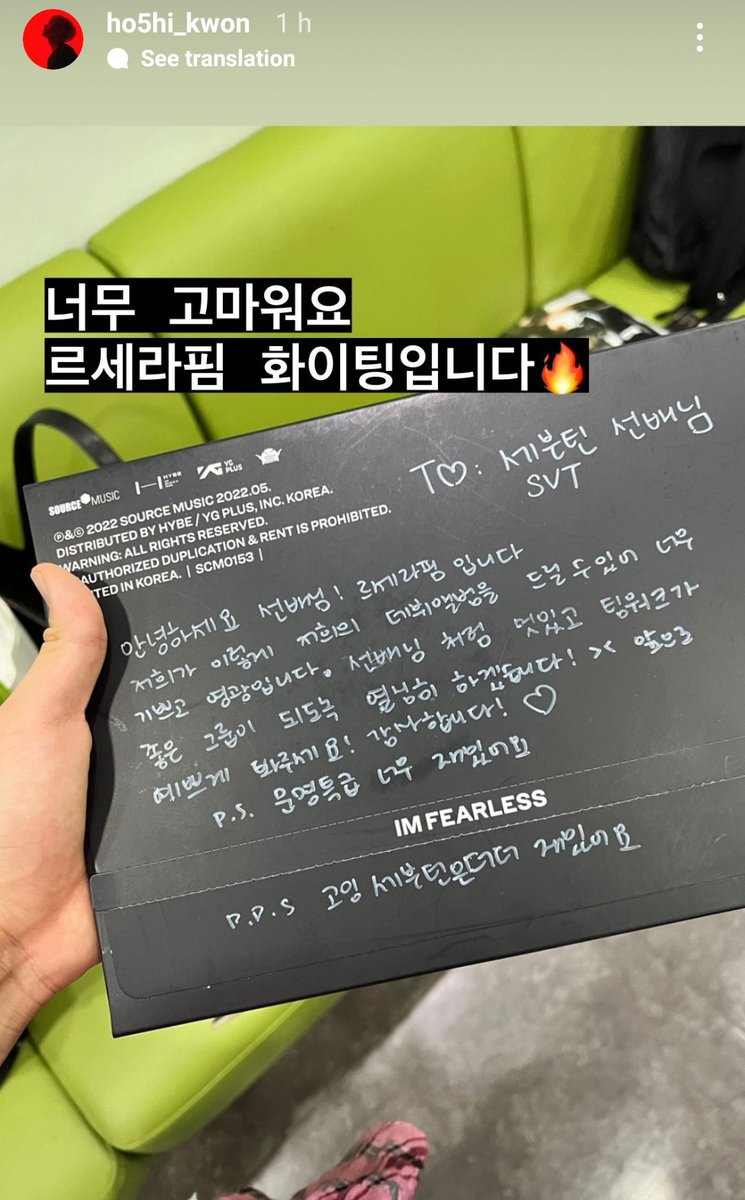 ho5hi_kwon 1 h
See translation
너무 고마워요
르세라핌 화이팅입니다🔥
SOURCE MUSIC HYBE YG PLUS
℗&© 2022 SOURCE MUSIC 2022.05.
DISTRIBUTED BY HYBE / YG PLUS, INC. KOREA.
WARNING: ALL RIGHTS RESERVED.
AUTHORIZED DUPLICATION & RENT IS PROHIBITED.
TED IN KOREA. | SCM0153 |
TO♡: 세븐틴 선배님
SVT
안녕하세요 선배님! 르세라핌입니다
저희가 이렇게 저희의 데뷔앨범을 드릴 수 있어 너무
기쁘고 영광입니다. 선배님처럼 멋있고 팀워크가
좋은 그룹이 되도록 열심히 하겠습니다! >< 앞으로
예쁘게 봐주세요! 감사합니다! ♡
P.S. 운명특급 너무 재밌어요
IM FEARLESS
P.P.S 고잉 세븐틴은 더더 재밌어요